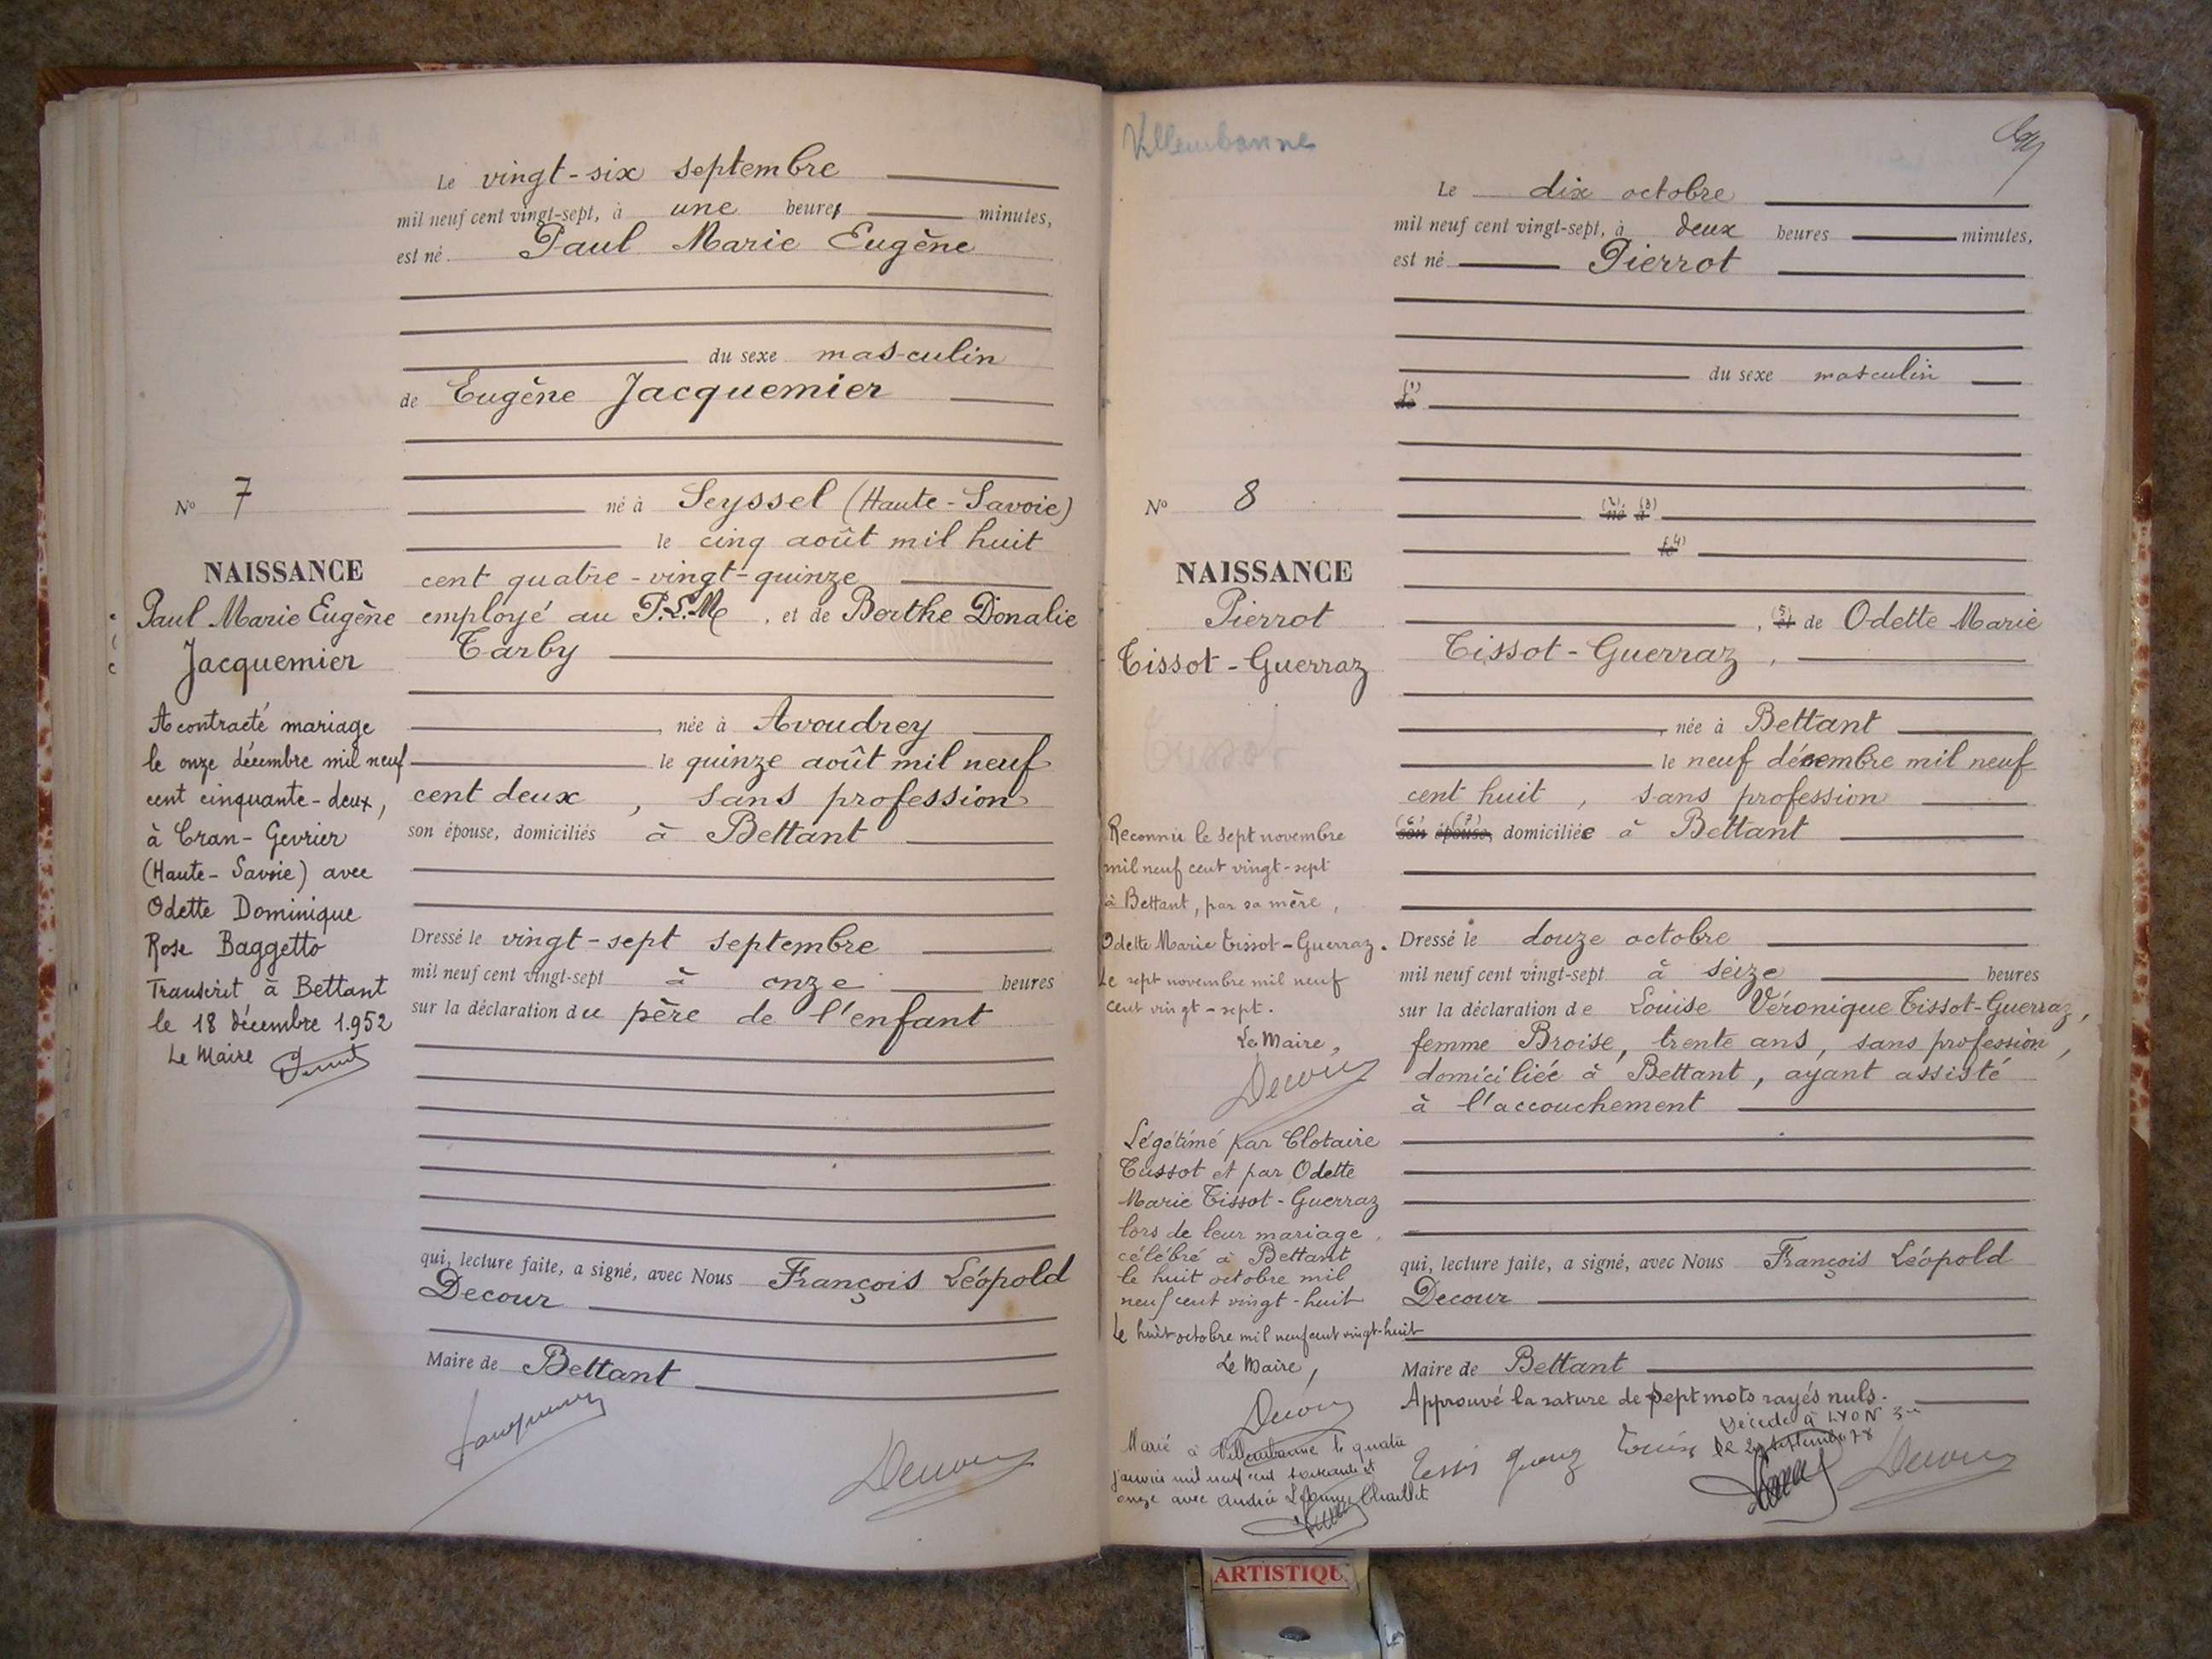 Le vingt-six septembre
mil neuf cent vingt-sept, à une heures minutes,
est né Paul Marie Eugène
du sexe masculin
de Eugène Jacquemier
né à Seyssel (Haute-Savoie)
le cinq août mil huit
cent quatre-vingt-quinze
employé au P.L.M, et de Berthe Donalie
Tarby
née à Avoudrey
le quinze août mil neuf
cent deux, sans profession
son épouse, domiciliés à Bettant
Dressé le vingt-sept septembre
mil neuf cent vingt-sept à onze heures
sur la déclaration du père de l'enfant
qui, lecture faite, a signé, avec Nous François Léopold
Decour
Maire de Bettant
Decour
N° 7
NAISSANCE
Paul Marie Eugène
Jacquemier
A contracté mariage
le onze décembre mil neuf
cent cinquante-deux,
à Cran-Gevrier
(Haute-Savoie) avec
Odette Dominique
Rose Baggetto
Transcrit à Bettant
le 18 décembre 1.952
Le Maire
Villeurbanne
Le dix octobre
mil neuf cent vingt-sept, à deux heures minutes,
est né Pierrot
du sexe masculin
(1) de
(2) né (3) à
(4) le
, (5) et de Odette Marie
Tissot-Guerraz,
née à Bettant
le neuf décembre mil neuf
cent huit, sans profession
(6) son (7) épouse, domiciliée à Bettant
Dressé le douze octobre
mil neuf cent vingt-sept à seize heures
sur la déclaration de Louise Véronique Tissot-Guerraz,
femme Broise, trente ans, sans profession,
domiciliée à Bettant, ayant assisté
à l'accouchement
qui, lecture faite, a signé, avec Nous François Léopold
Decour
Maire de Bettant
Approuvé la rature de sept mots rayés nuls.
Décédé à LYON 3e
septembre 78
Decour
N° 8
NAISSANCE
Pierrot
Tissot-Guerraz
Tussot
Reconnu le sept novembre
mil neuf cent vingt-sept
à Bettant, par sa mère,
Odette Marie Tissot-Guerraz.
Le sept novembre mil neuf
cent vingt-sept.
Le Maire,
Decour
Légétimé par Clotaire
Tussot et par Odette
Marie Tissot-Guerraz
lors de leur mariage
célébré à Bettant
le huit octobre mil
neuf cent vingt-huit
Le huit octobre mil neuf cent vingt-huit
Le Maire,
Decour
Marié à Villeurbanne le quatre
janvier mil neuf cent soixante et
onze avec Andrée Chaillet
ARTISTIQU